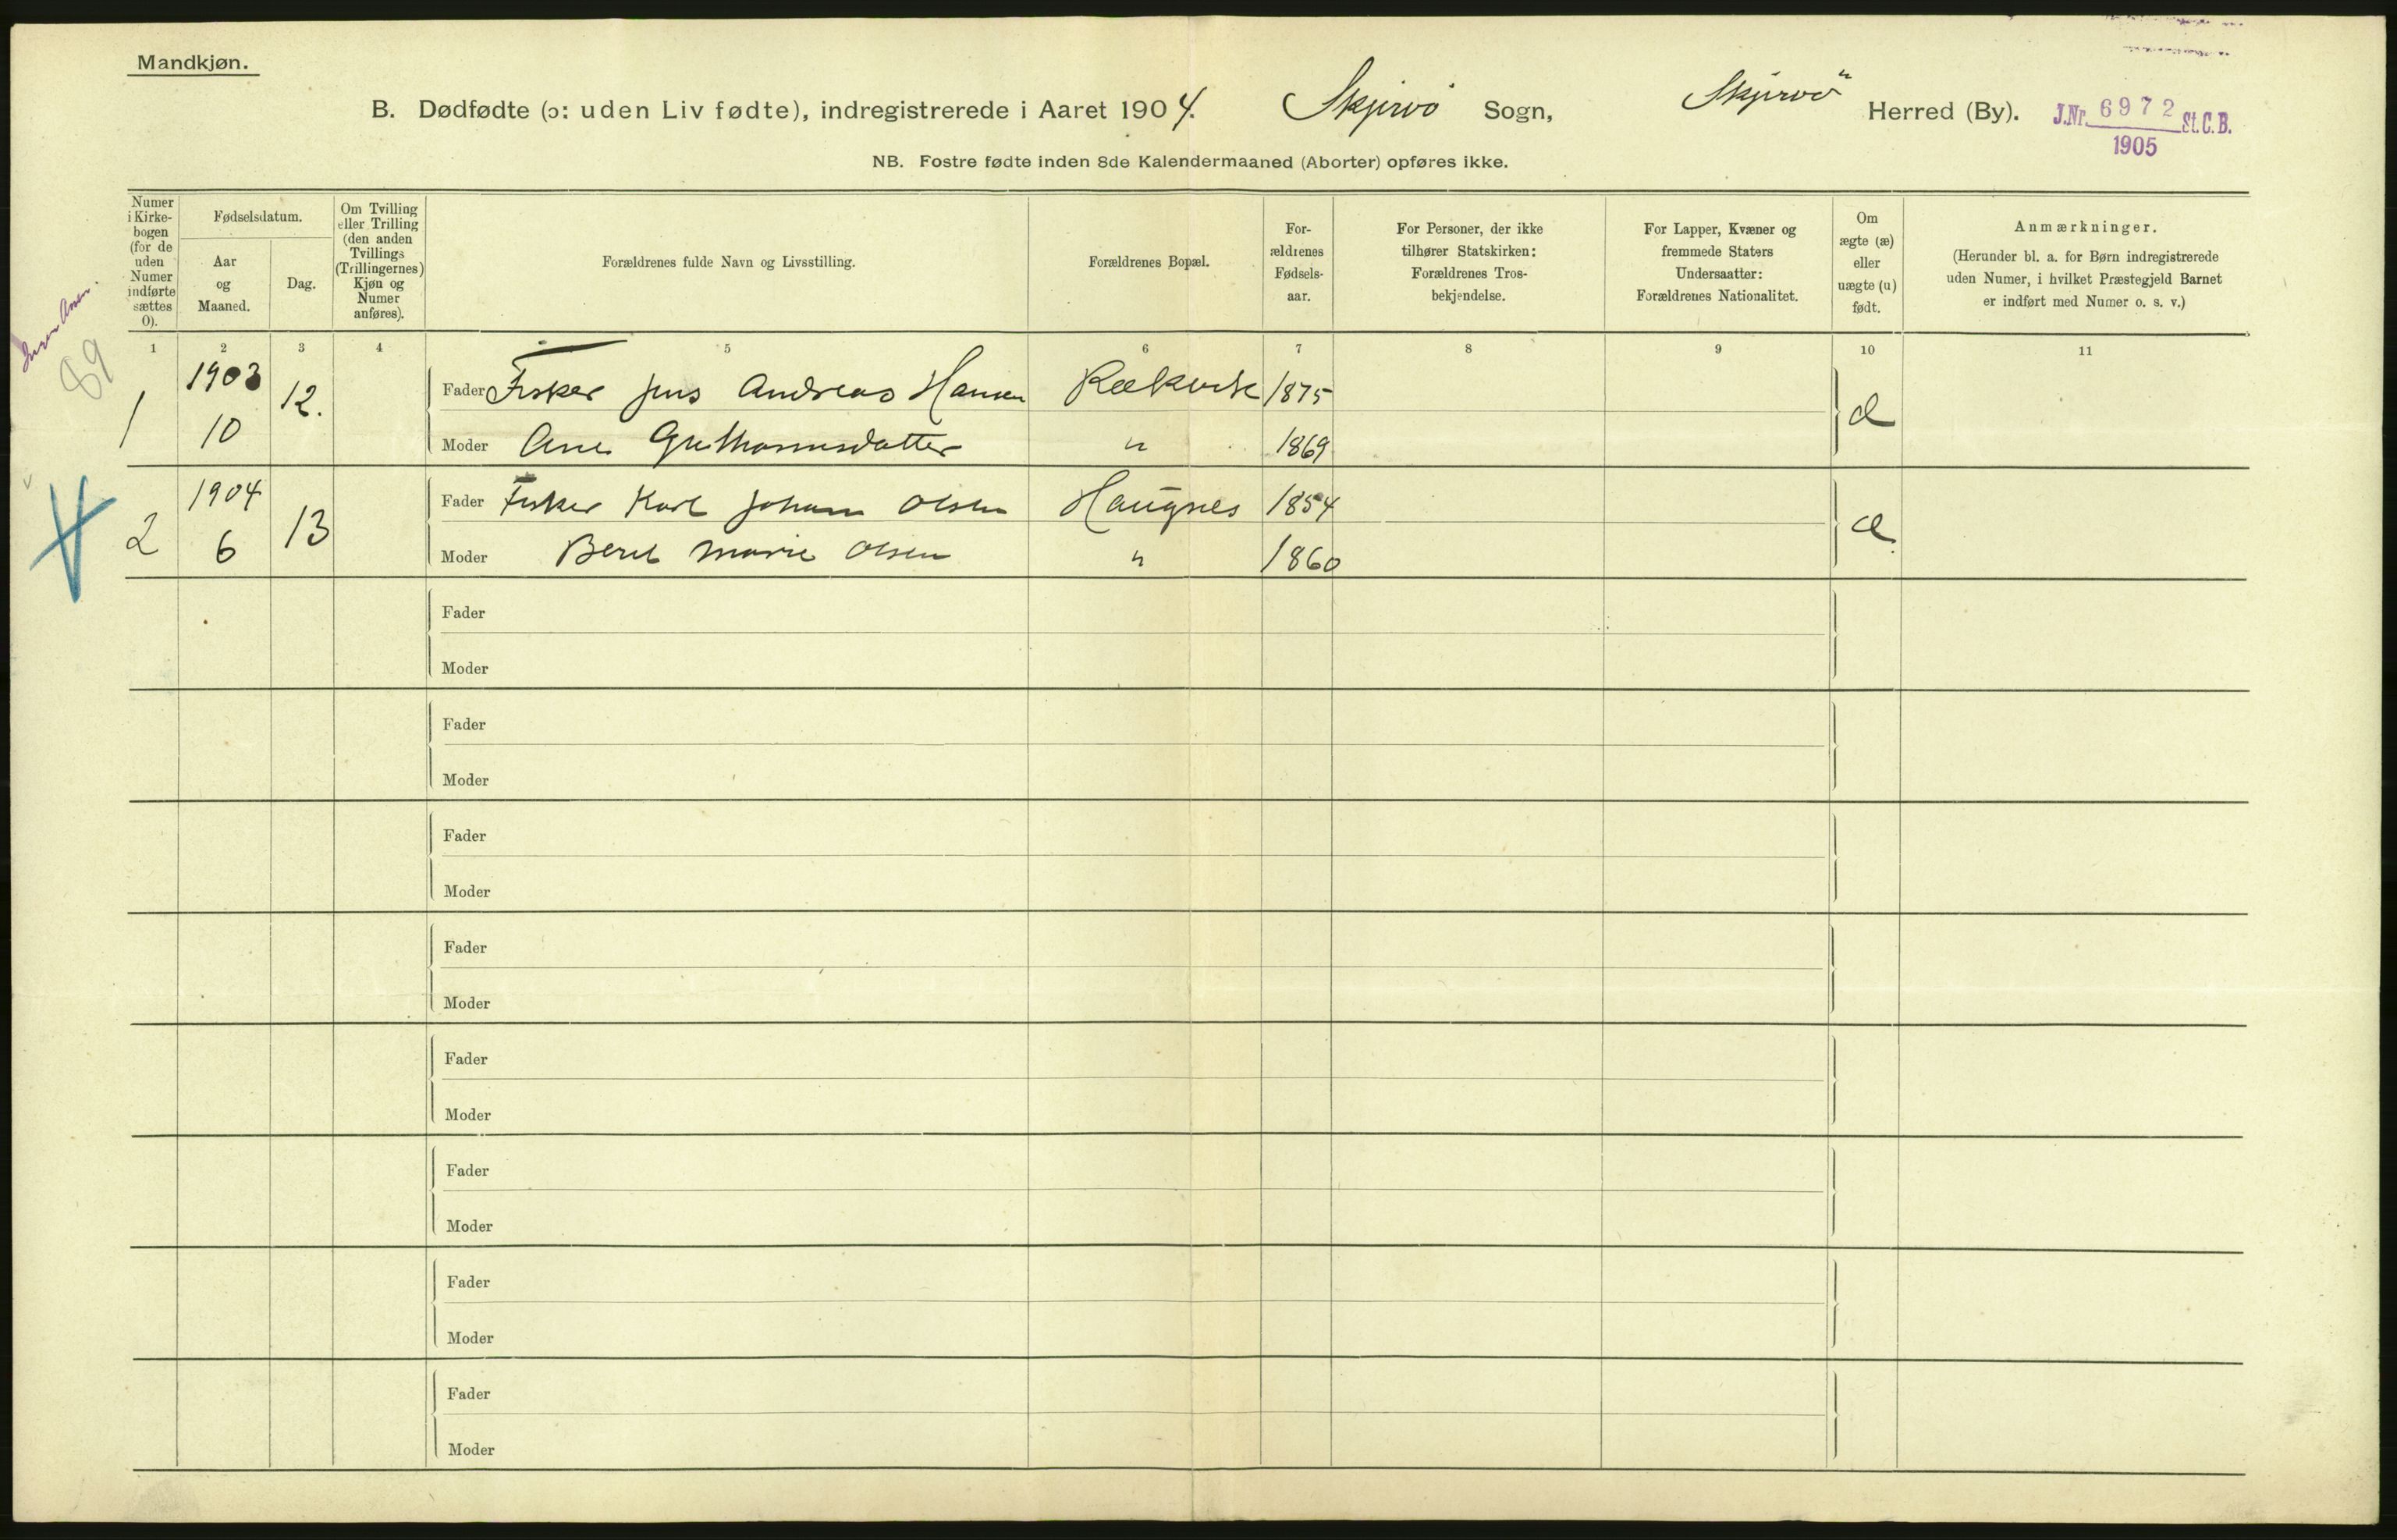 Mandkjøn.
B. Dødfødte (ɔ: uden Liv fødte), indregistrerede i Aaret 1904. Skjervö Sogn, Skjervö Herred (By).
J.Nr. 6972 St.C.B.
1905
NB. Fostre fødte inden 8de Kalendermaaned (Aborter) opføres ikke.
Numer i Kirke-bogen (for de uden Numer indførte sættes 0).
Fødselsdatum.
Aar og Maaned.
Dag.
Om Tvilling eller Trilling (den anden Tvillings (Trillingernes) Kjøn og Numer anføres).
Forældrenes fulde Navn og Livsstilling.
Forældrenes Bopæl.
For-ældrenes Fødsels-aar.
For Personer, der ikke tilhører Statskirken: Forældrenes Tros-bekjendelse.
For Lapper, Kvæner og fremmede Staters Undersaatter: Forældrenes Nationalitet.
Om ægte (æ) eller uægte (u) født.
Anmærkninger.
(Herunder bl. a. for Børn indregistrerede uden Numer, i hvilket Præstegjeld Barnet er indført med Numer o. s. v.)
1 2 3 4 5 6 7 8 9 10 11
89
1 1903 10 12. Fader Fisker Jens Andreas Hansen 1875 æ
Moder Ane " 1869
2 1904 6 13 Fader Fisker Karl Johan Olsen Haugnes 1854 æ
Moder Beret Marie Olsen " 1860
Fader
Moder
Fader
Moder
Fader
Moder
Fader
Moder
Fader
Moder
Fader
Moder
Fader
Moder
Fader
Moder